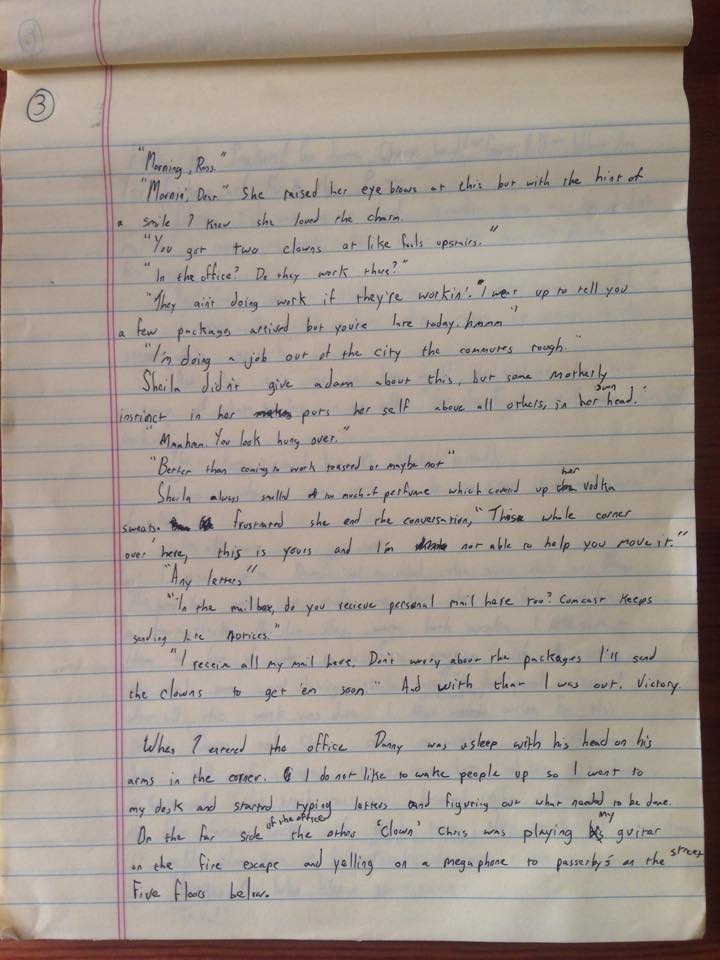 3
"Morning, Ross."
"Mornin', Dear." She raised her eye brows at this but with the hint of
a smile I knew she loved the charm.
"You got two clowns at like fails upstairs."
"In the office? Do they work there?"
"They ain't doing work if they're workin'. I went up to tell you
a few packages arrived but you're late today. hmmm"
"I'm doing a job out of the city the commutes rough."
Sheila didn't give a damn about this, but some motherly
instinct in her puts her self above all others, in her own head.
"Mmhmm. You look hung over."
"Better than coming to work toasted or maybe not"
Sheila always smelled of too much of perfume which coverd up her vodka
sweats. frustrated she end the conversation, "This whole corner
over here, this is yours and I'm not able to help you move it."
"Any letters"
"In the mailbox, do you recieve personal mail here too? Comcast keeps
sending late notices."
"I receive all my mail here. Don't worry about the packages I'll send
the clowns to get 'em soon" And with that I was out. Victory.
When I entered the office Danny was asleep with his head on his
arms in the corner. I do not like to wake people up so I went to
my desk and started typing letters and figuring out what needed to be done.
On the far side of the office the other 'clown' Chris was playing my guitar
on the fire escape and yelling on a megaphone to passerby's on the street
Five floors below.